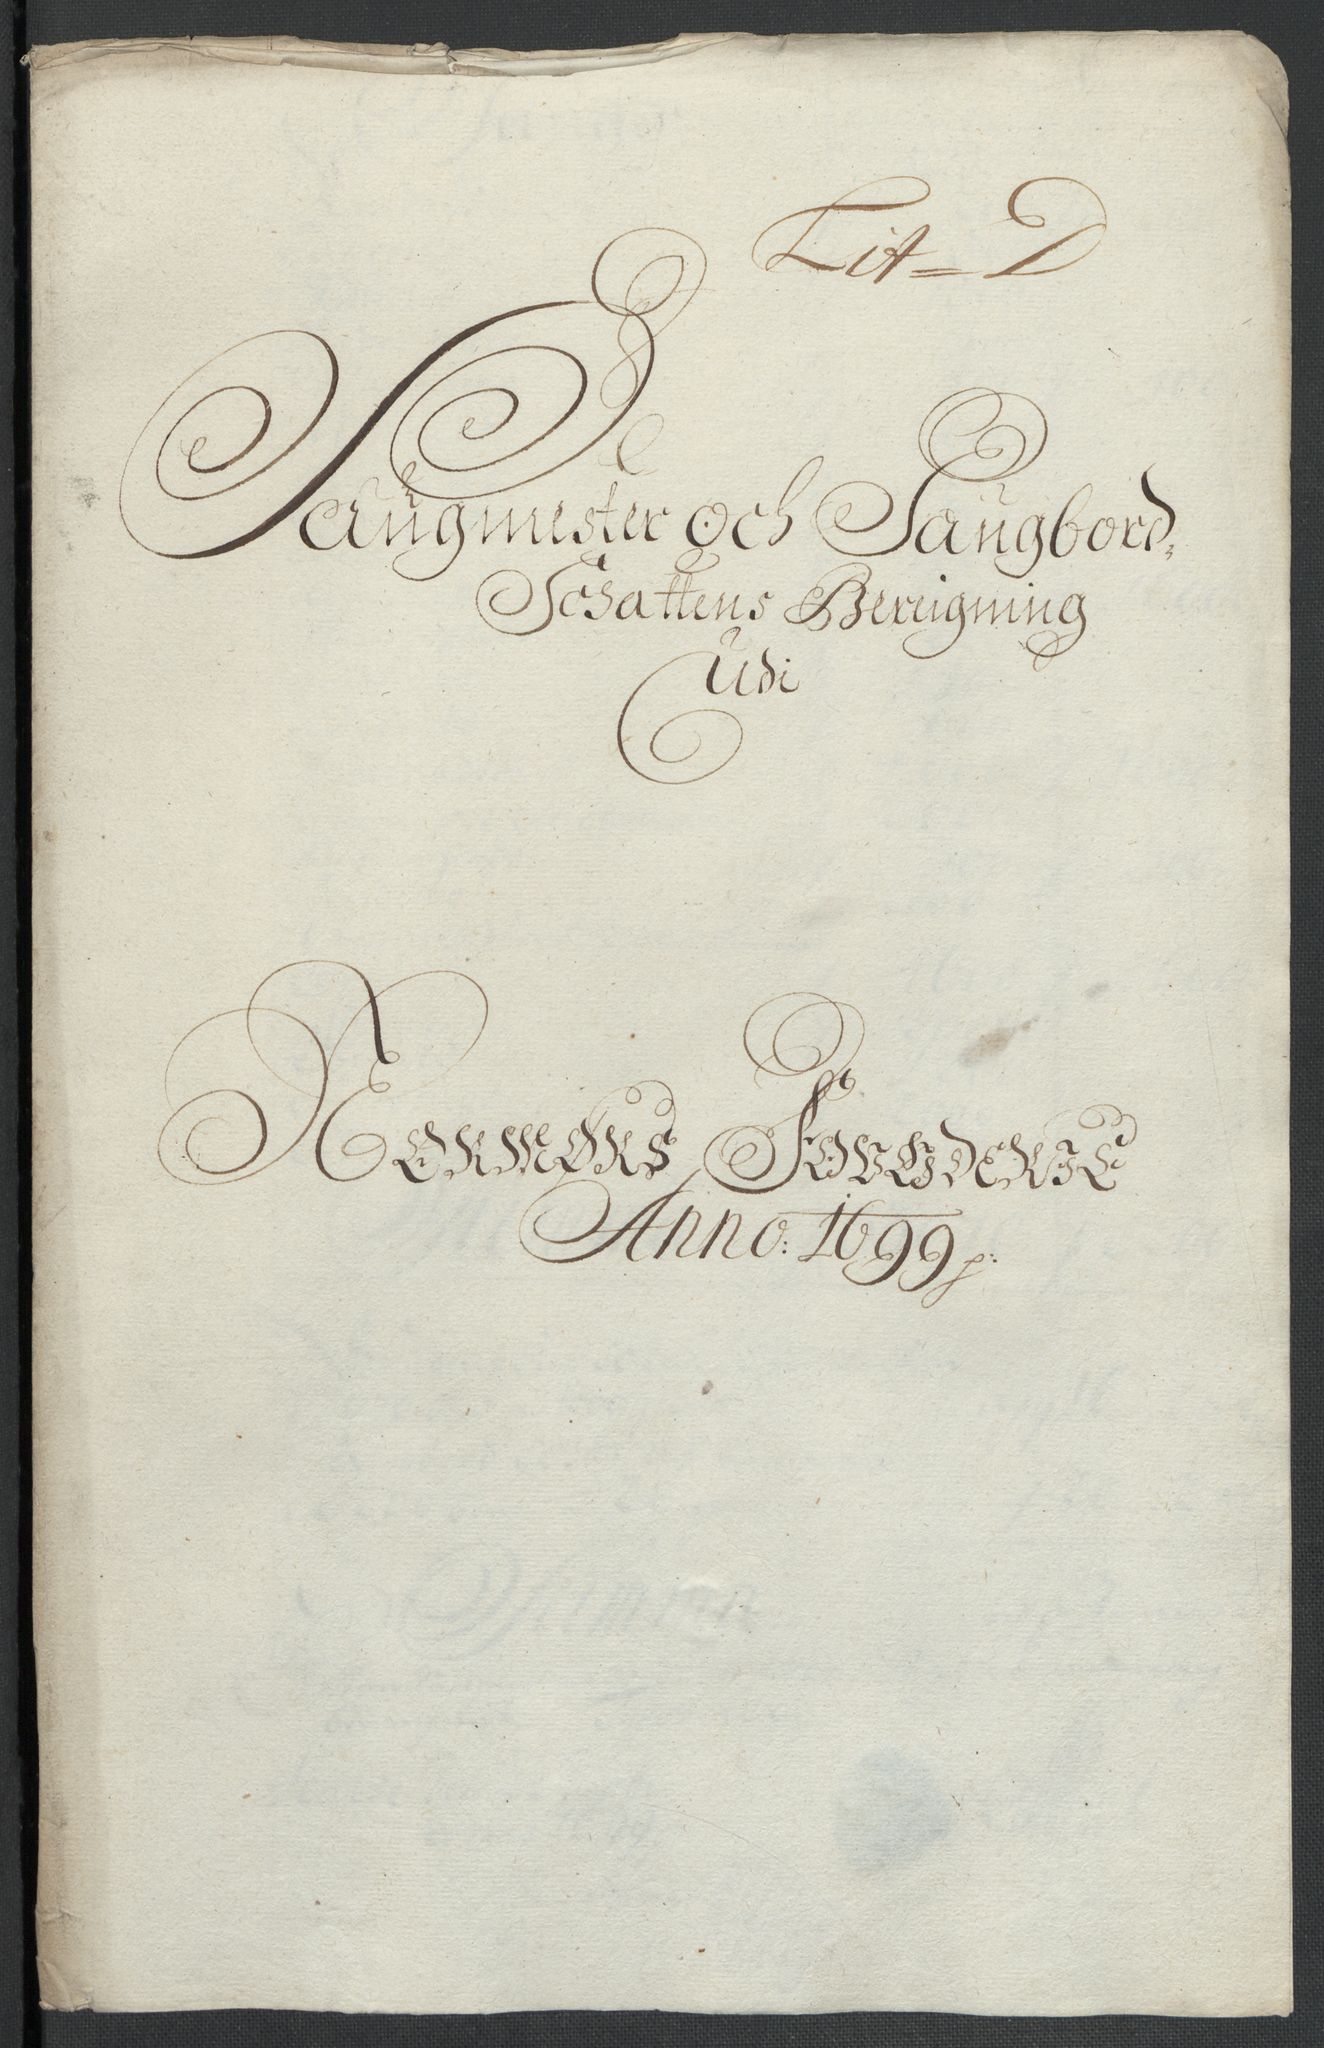 Lit = D
Saugmester och Saugbord,
Schattens Bereigning
Udi
Normørs Fougderie
Anno: 1699 p: